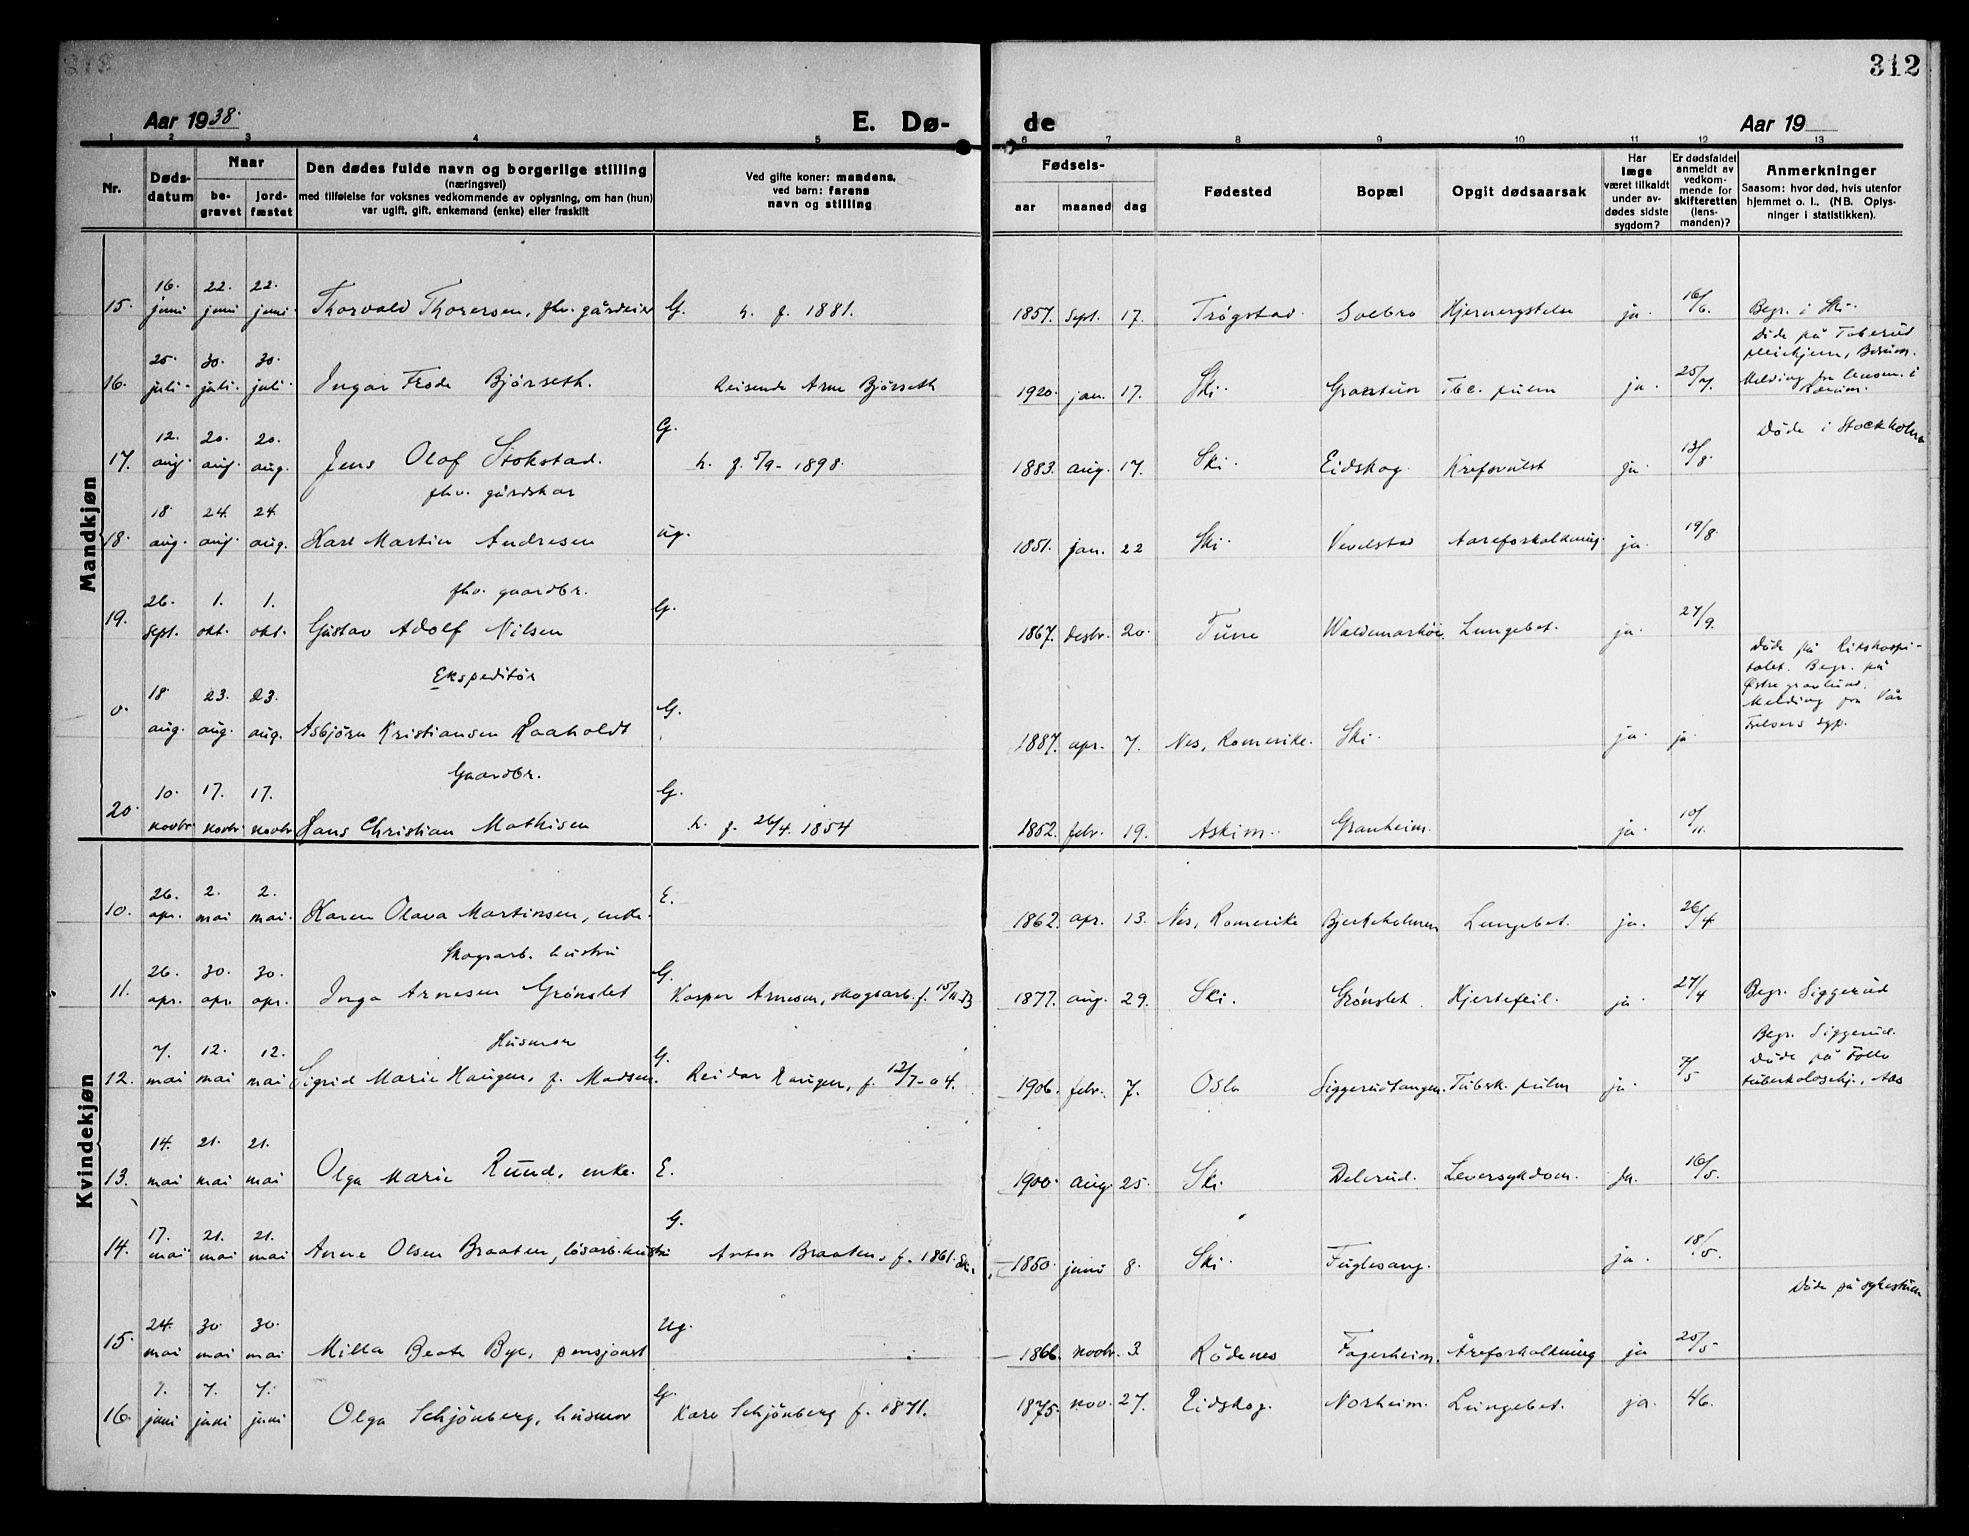 312
Aar 1938.
E. Dø-
de
Aar 19
1 2 3 4 5 6 7 8 9 10 11 12 13
Nr.
Døds-
datum
Naar
be-
gravet
jord-
fæstet
Den dødes fulde navn og borgerlige stilling
(næringsvei)
med tilføielse for voksnes vedkommende av oplysning, om han (hun)
var ugift, gift, enkemand (enke) eller fraskilt
Ved gifte koner: mandens,
ved barn: farens
navn og stilling
Fødsels-
aar maaned dag
Fødested
Bopæl
Opgit dødsaarsak
Har
læge
været tilkaldt
under av-
dødes sidste
sygdom?
Er dødsfaldet
anmeldt av
vedkom-
mende for
skifteretten
(lens-
manden)?
Anmerkninger
Saasom: hvor død, hvis utenfor
hjemmet o. l., (NB. Oplys-
ninger i statistikken).
Mandkjøn
16. 22. 22.
15. juni juni juni. Thorvald Thoresen, fhv. gårdeier G. h. f. 1881. 1857. sept. 17. Trøgstad. Solbro Hjernerystelse ja. 16/6. Begr. i Ski.
25. 30. 30. Døde på
16. juli. juli. juli. Ingar Frode Bjørseth. Reisende Arne Bjørseth 1920. jan. 17. Ski. Grantun Tbc. pulm ja. 25/7. Melding fra lensm. i
Bærum.
12. 20. 20. G. Døde i Stockholm
17. aug. aug. aug. Jens Olaf Stokstad. h. f. 5/9-1898. 1883. aug. 17. Ski. Eidskog. Kreftsvulst ja. 13/8.
fhv. gårdskar
18. 24. 24.
18. aug. aug. aug. Karl Martin Andresen ug. 1851. jan. 22 Ski. Vevelstad Aareforkalkning. ja. 19/8.
fhv. gaardbr.
26. 1. 1. G.
19. sept. okt. okt. Gustav Adolf Nilsen 1867. desbr. 20. Tune Waldemarhøi. Lungebet. ja. 27/9.
Ekspeditør
Døde på Rikshospi-
talet. Begr. på
Østre gravlund.
Melding fra Vår
Frelsers sgp.
18. 23. 23. G.
0. aug. aug. aug. Asbjørn Kristiansen Raaholdt 1887. apr. 7. Nes, Romerike. Ski. ja. ja.
Gaardbr.
10. 17. 17. G.
20. novbr. novbr. novbr. Hans Christian Mathisen h. f. 26/4. 1854 1852. febr. 19. Askim. Granheim. ja. 10/11.
Kvindekjøn
26. 2. 2. E.
10. apr. mai mai. Karen Olava Martinsen, enke. 1862. apr. 13. Nes, Romerike Bjerkeholmen Lungebet. ja. 26/4.
Skogsarb. hustru
26. 30. 30. G.
11. apr. apr. apr. Inga Arnesen Grønslet Kasper Arnesen, skogsarb. f. 1877. aug. 29. Ski. Grønslet. Hjertefeil. ja. 27/4 Begr. Siggerud
Husmor
7. 12. 12. G. Begr. Siggerud.
12. mai mai mai Sigrid Marie Haugen, f. Madsen. Reidar Haugen, f. 12/7-04. 1906. febr. 7. Oslo Siggerudtangen. Tuberk. pulm ja. 7/5 Døde på Follo
tuberkolosehj., Aas
14. 21. 21.
13. mai mai mai Olga Marie Ruud, enke. E. 1900. aug. 25. Ski. Delerud. Leversykdom. Ja. 16/5.
17. 21. 21. G.
14. mai mai mai Anne Olsen Braaten, løsarb. hustru Anton Braaten, f. 1861. Ski. 1850. juni 8. Ski. Fuglesang. ja. 18/5.
Døde på
24. 30. 30. Ug.
15. mai mai mai Milla Beate Bye, pensjonist 1866. novbr. 3. Rødenes Fagerheim. Åreforkalkning ja 25/5
1. 7. 7. G.
16. juni juni juni Olga Schjønberg, husmor Karl Schjønberg f. 1871. 1875. nov. 27. Eidskog. Norheim. Lungebet. ja. 4/6.